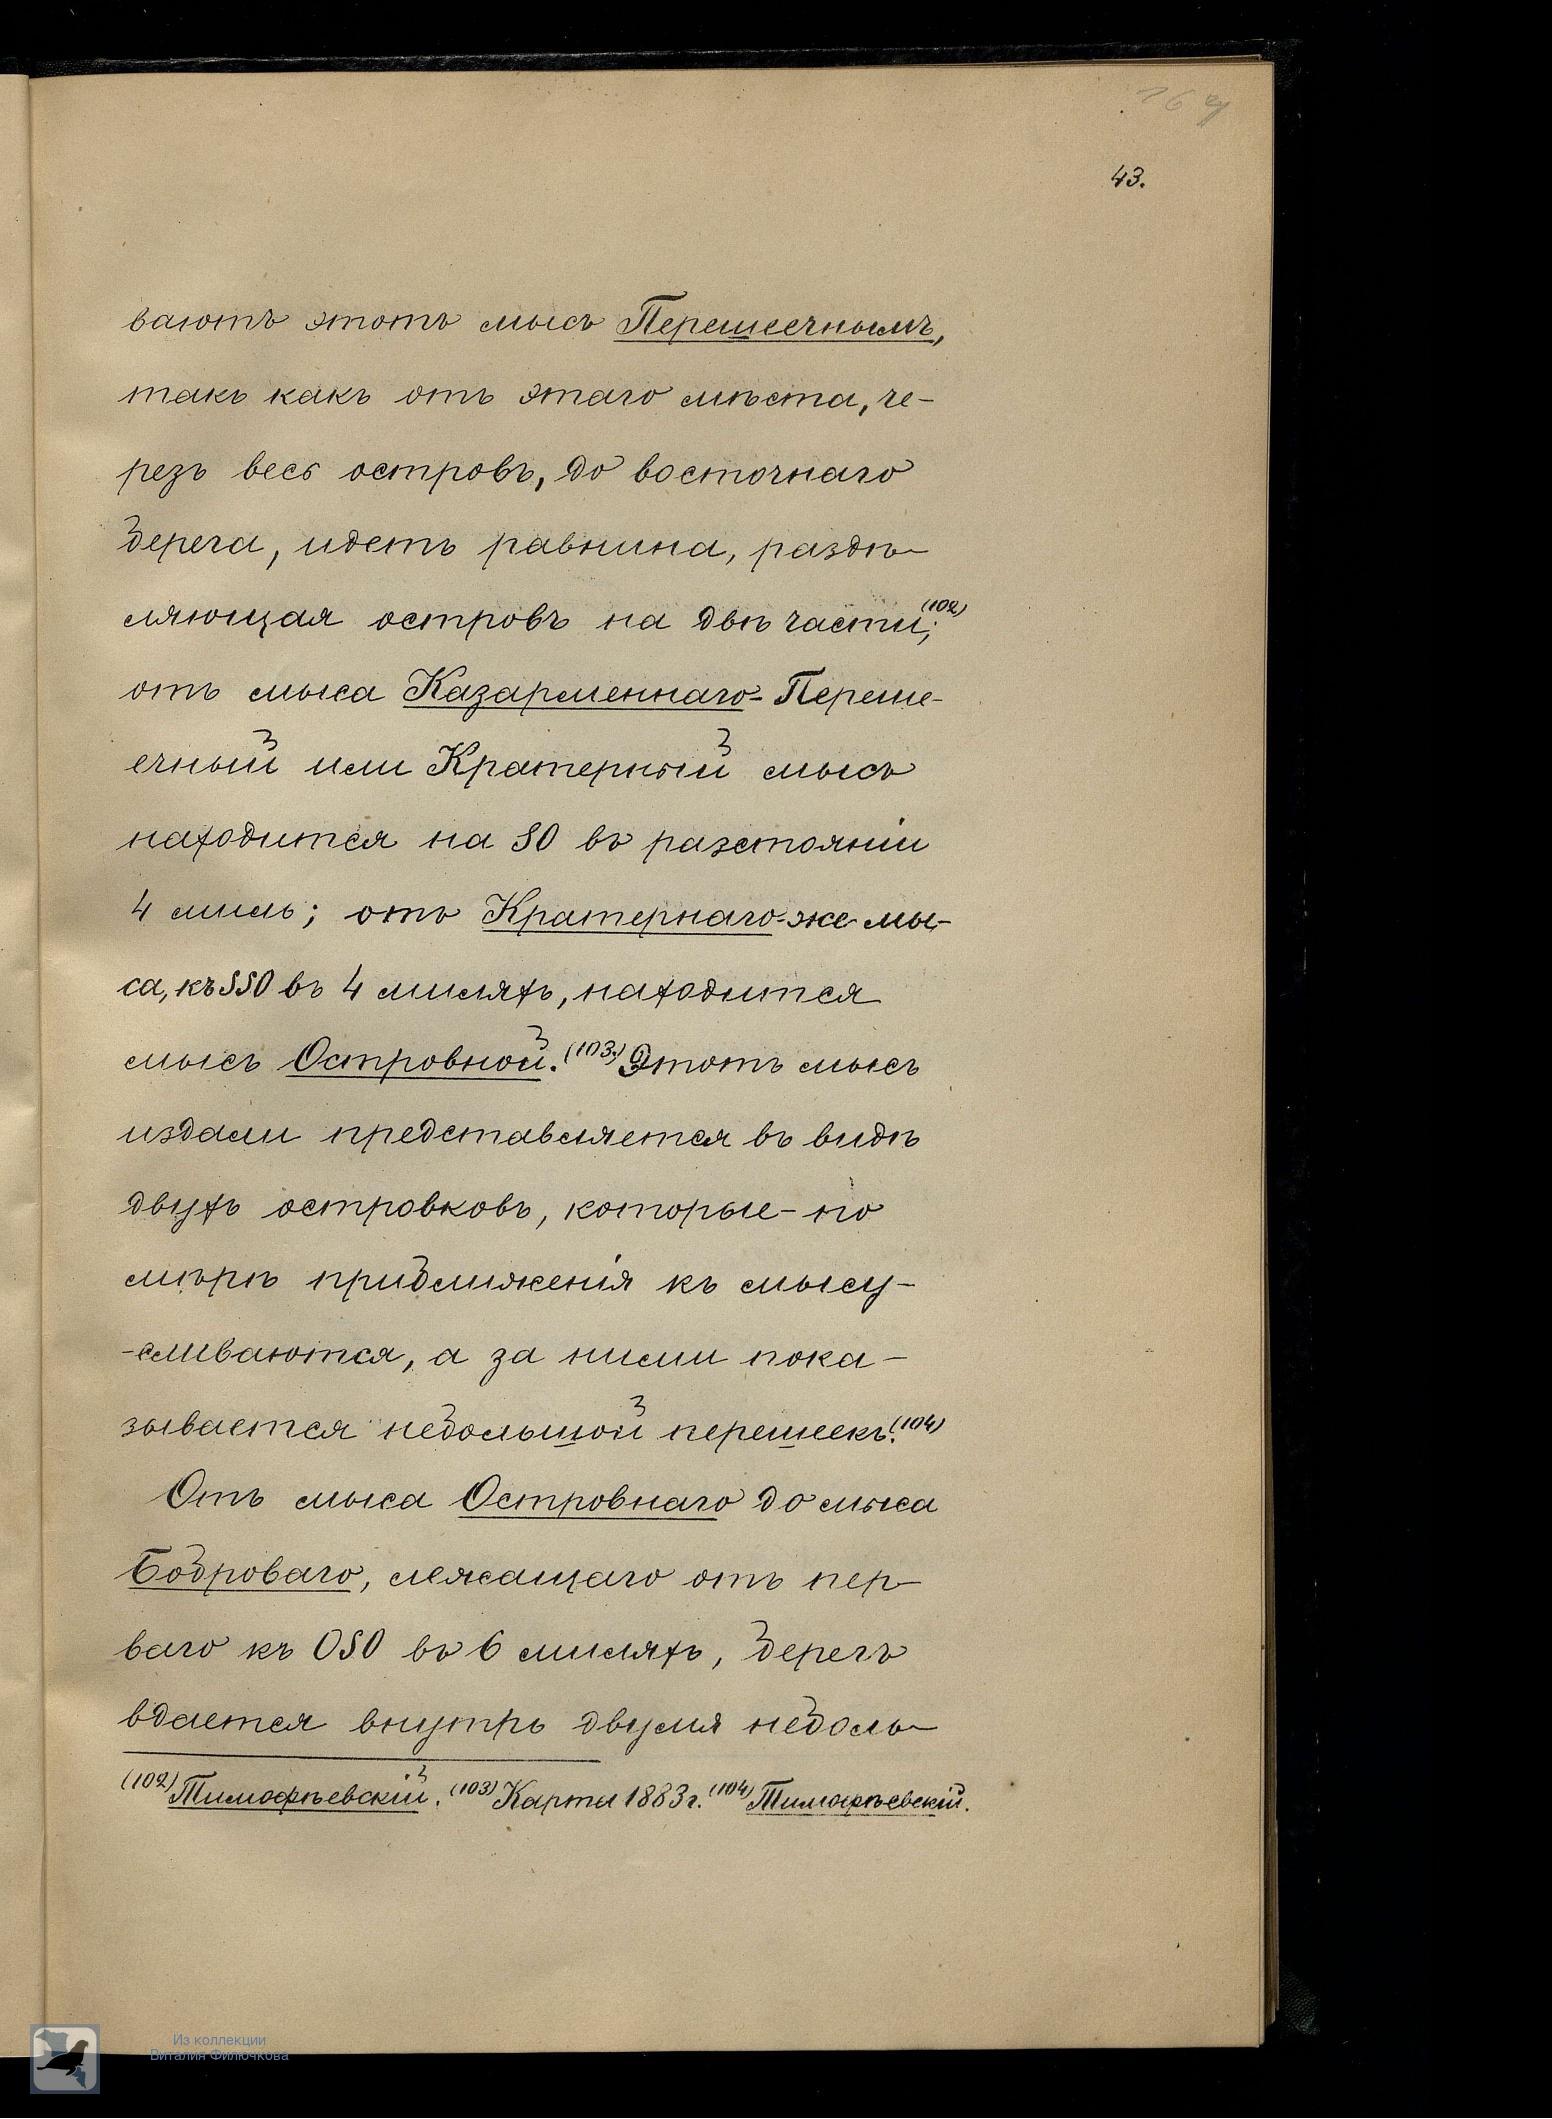 43.
ваютъ этотъ мысъ Перешеечнымъ,
такъ какъ отъ этаго мѣста, че-
резъ весь островъ, до восточнаго
берега, идетъ равнина, раздѣ-
ляющая островъ на двѣ части; (102)
отъ мыса Казарменнаго - Переше-
ечный или Кратерный мысъ
находится на SO въ разстояніи
4 миль; отъ Кратернаго-же мы-
са, къ SSO въ 4 миляхъ, находится
мысъ Островной. (103) Этотъ мысъ
издали представляется въ видѣ
двухъ островковъ, которые - по
мѣрѣ приближенія къ мысу -
- сливаются, а за ними пока-
зывается небольшой перешеекъ. (104)
Отъ мыса Островнаго до мыса
Боброваго, лежащаго отъ пер-
ваго къ OSO въ 6 миляхъ, берегъ
вдается внутрь двумя неболь-
(102) Тимофѣевскій. (103) Карты 1883 г. (104) Тимофѣевскій.
Из коллекции
Виталия Филючкова